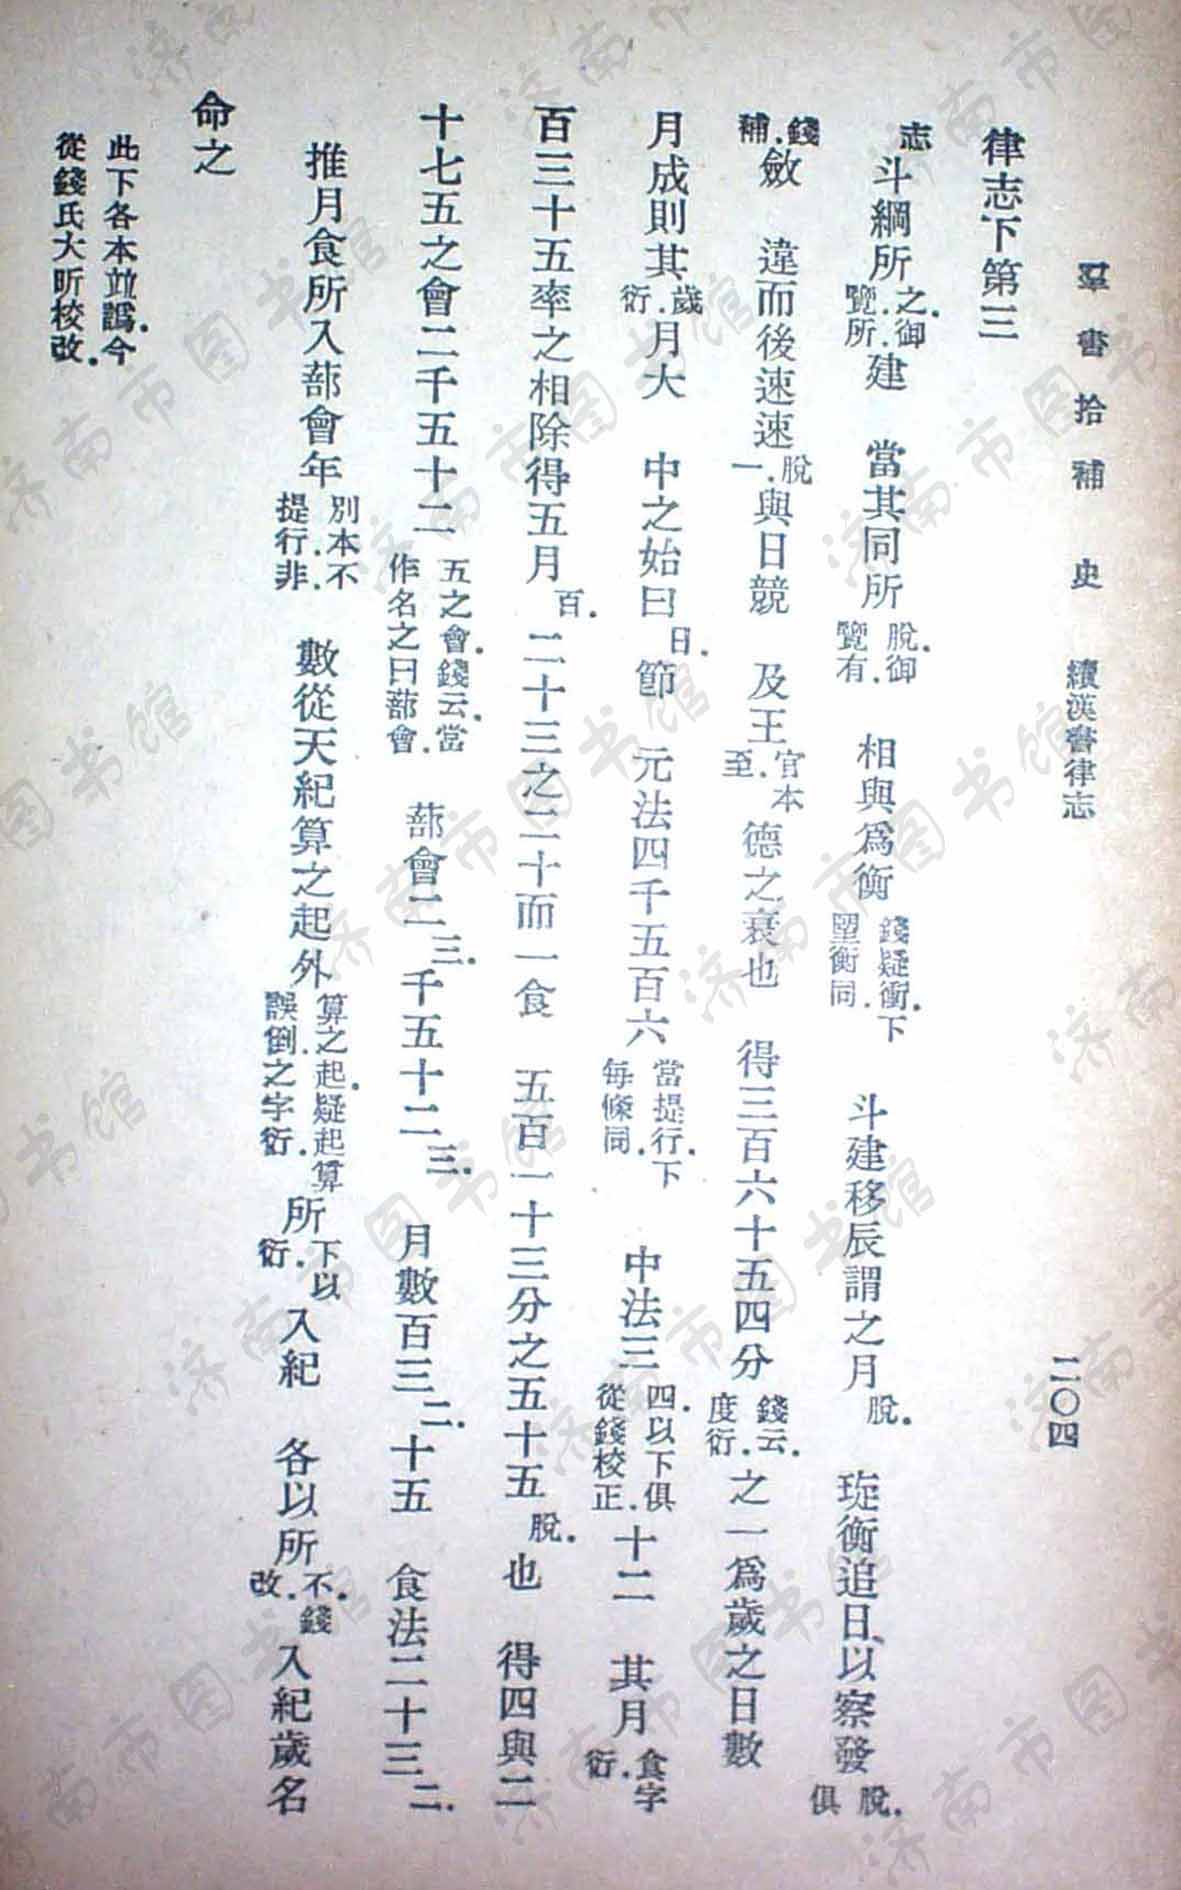 羣書拾補 史 續漢書律志 二〇四
律志下第三
志斗綱所之.御覽.所建 當其同所脫.御覽.有 相與爲衡錢疑衝.下望衡同. 斗建移辰謂之月脫. 琁衡追日以察發脫.俱
錢.補斂 違而後速速脫.一與日競 及王官本至.德之衰也 得三百六十五四分錢云.度衍.之一爲歲之日數
月成則其歲.衍月大 中之始曰日.節 元法四千五百六當提行.下每條同. 中法三四.以下俱從錢校正.十二 其月食字衍.
百三十五率之相除得五月百.二十三之二十而一食 五百一十三分之五十五脫.也 得四與二
十七五之會二千五十二五之會.錢云.當作名之曰蔀會. 蔀會二三.千五十二三. 月數百三二.十五 食法二十三二.
推月食所入蔀會年別本不提行.非. 數從天紀算之起外算之起.疑起算誤倒.之字衍. 所下以衍.入紀 各以所不.錢改.入紀歲名
命之
此下各本並譌.今從錢氏大昕校改.
济南市图书馆